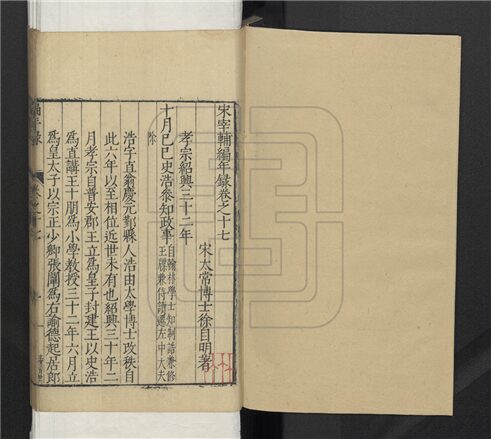 宋宰輔編年錄卷之十七
宋太常博士徐自明著
孝宗紹興三十二年
十月己巳史浩參知政事自翰林學士知制誥兼修
玉牒兼侍讀遷左中大夫
除
浩字直翁慶元鄞縣人浩由太學博士改秩自
此六年以至相位近世未有也紹興三十年二
月孝宗自普安郡王立為皇子封建王以史浩
為直講王十朋為小學教授三十二年六月立
為皇太子以宗正少卿張闡為右諭德起居郎